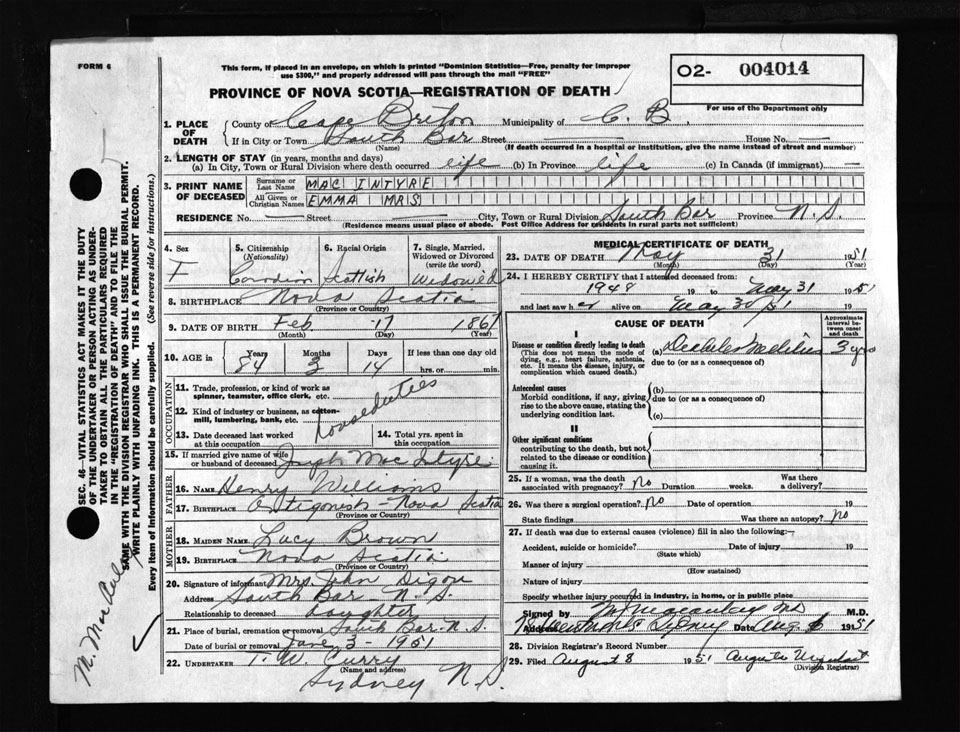 FORM 6
This form, if placed in an envelope, on which is printed "Dominion Statistics—Free, penalty for improper
use $300," and properly addressed will pass through the mail "FREE"
O2- 004014
For use of the Department only
PROVINCE OF NOVA SCOTIA—REGISTRATION OF DEATH
1. PLACE OF DEATH
County of Cape Breton Municipality of C. B.
If in City or Town South Bar Street House No. —
(Name) (If death occurred in a hospital or institution, give the name instead of street and number)
2. LENGTH OF STAY (in years, months and days)
(a) In City, Town or Rural Division where death occurred life (b) In Province life (c) In Canada (if immigrant) —
3. PRINT NAME OF DECEASED
Surname or Last Name MAC INTYRE
All Given or Christian Names EMMA MRS
RESIDENCE No. — Street — City, Town or Rural Division South Bar Province N.S.
(Residence means usual place of abode. Post Office Address for residents in rural parts not sufficient)
4. Sex
F
5. Citizenship
(Nationality)
Canadian
6. Racial Origin
Scottish
7. Single, Married, Widowed or Divorced
(write the word)
Widowed
8. BIRTHPLACE Nova Scotia
(Province or Country)
9. DATE OF BIRTH Feb 17 1867
(Month) (Day) (Year)
10. AGE in Years Months Days If less than one day old
84 3 14 hrs. or min.
OCCUPATION
11. Trade, profession, or kind of work as
spinner, teamster, office clerk, etc.
12. Kind of industry or business, as cotton-
mill, lumbering, bank, etc.
houseduties
13. Date deceased last worked
at this occupation
14. Total yrs. spent in
this occupation
15. If married give name of wife
or husband of deceased Joseph Mac Intyre
FATHER
16. NAME Henry Williams
17. BIRTHPLACE Antigonish Nova Scotia
(Province or Country)
MOTHER
18. MAIDEN NAME Lucy Brown
19. BIRTHPLACE Nova Scotia
(Province or Country)
20. Signature of informant Mrs. John Digou
Address South Bar N.S.
Relationship to deceased daughter
21. Place of burial, cremation or removal South Bar N.S.
Date of burial or removal June 3 1951
22. UNDERTAKER T. W. Curry
(Name and address)
Sydney N.S.
MEDICAL CERTIFICATE OF DEATH
23. DATE OF DEATH May 31 1951
(Month) (Day) (Year)
24. I HEREBY CERTIFY that I attended deceased from:
1948 19 to May 31 1951
and last saw her alive on May 30/51
CAUSE OF DEATH
Approximate interval between onset and death
I
Disease or condition directly leading to death
(This does not mean the mode of
dying, e.g., heart failure, asthenia,
etc. It means the disease, injury, or
complication which caused death.)
(a) Diabetes Mellitus 3 yrs
due to (or as a consequence of)
Antecedent causes
Morbid conditions, if any, giving
rise to the above cause, stating the
underlying condition last.
(b)
due to (or as a consequence of)
(c)
II
Other significant conditions
contributing to the death, but not
related to the disease or condition
causing it.
25. If a woman, was the death
associated with pregnancy? No Duration weeks. Was there
a delivery?
26. Was there a surgical operation? No Date of operation 19
State findings Was there an autopsy? no
27. If death was due to external causes (violence) fill in also the following:—
Accident, suicide or homicide? Date of injury 19
(State which)
Manner of injury
(How sustained)
Nature of injury
Specify whether injury occurred in industry, in home, or in public place
Signed by M.D.
Address Sydney Date Aug 6 1951
28. Division Registrar's Record Number
29. Filed August 8 1951
(Division Registrar)
SEC. 46—VITAL STATISTICS ACT MAKES IT THE DUTY
OF THE UNDERTAKER OR PERSON ACTING AS UNDER-
TAKER TO OBTAIN ALL THE PARTICULARS REQUIRED
IN THE "REGISTRATION OF DEATH" AND TO FILE THE
SAME WITH THE DIVISION REGISTRAR WHO SHALL ISSUE THE BURIAL PERMIT.
WRITE PLAINLY WITH UNFADING INK. THIS IS A PERMANENT RECORD.
Every item of Information should be carefully supplied. (See reverse side for instructions.)